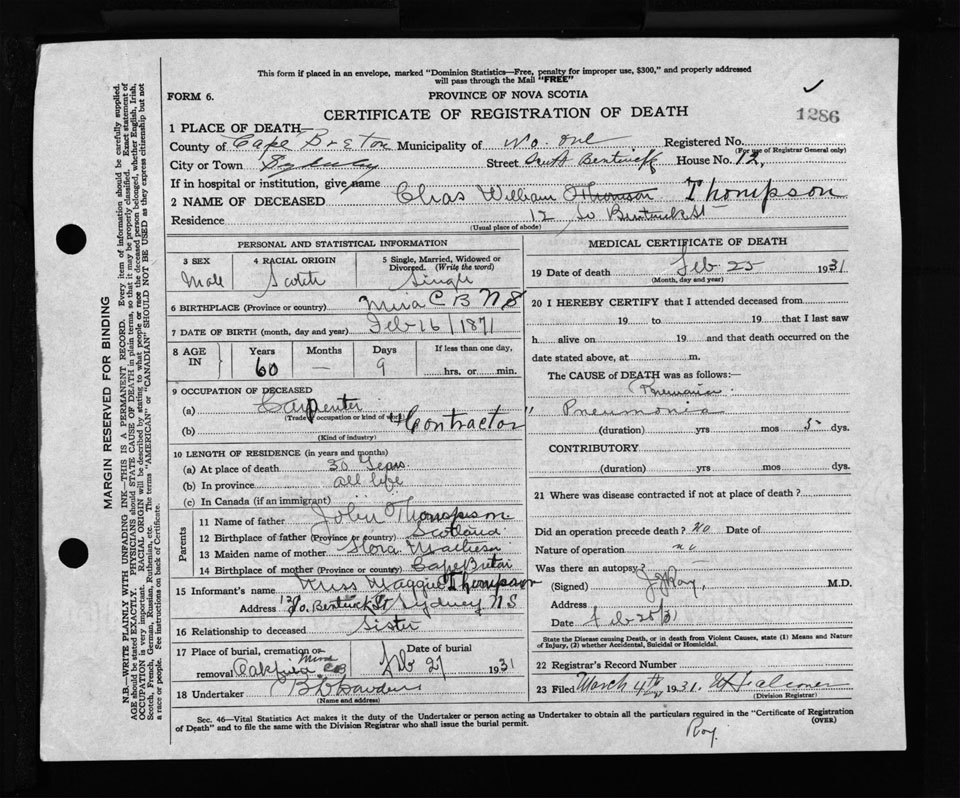 This form if placed in an envelope, marked "Dominion Statistics—Free, penalty for improper use, $300," and properly addressed
will pass through the Mail "FREE"
FORM 6.
PROVINCE OF NOVA SCOTIA
1286
CERTIFICATE OF REGISTRATION OF DEATH
1 PLACE OF DEATH—
County of Cape Breton Municipality of No. One Registered No.
(For use of Registrar General only)
City or Town Sydney Street South Bentinck House No. 12,
If in hospital or institution, give name
2 NAME OF DECEASED Chas William Thomson Thompson
Residence 12 So Bentinck St
(Usual place of abode)
PERSONAL AND STATISTICAL INFORMATION
3 SEX
Male
4 RACIAL ORIGIN
Scotch
5 Single, Married, Widowed or
Divorced. (Write the word)
Single
6 BIRTHPLACE (Province or country) Mira C B N S
7 DATE OF BIRTH (month, day and year) Feb 16/1871
8 AGE IN
Years Months Days If less than one day,
60 — 9 hrs. or min.
9 OCCUPATION OF DECEASED
(a) Carpenter
(Trade, occupation or kind of work)
(b) "Contractor"
(Kind of industry)
10 LENGTH OF RESIDENCE (in years and months)
(a) At place of death 30 Years
(b) In province all life
(c) In Canada (if an immigrant)
Parents
11 Name of father John Thompson
12 Birthplace of father (Province or country) Scotland
13 Maiden name of mother Flora Matheson
14 Birthplace of mother (Province or country) Cape Breton
15 Informant's name Miss Maggie Thompson
Address 12 So. Bentinck St Sydney N S
16 Relationship to deceased Sister
17 Place of burial, cremation or
removal Oakfield Mira CB
Date of burial
Feb 27 1931
18 Undertaker
(Name and address)
MEDICAL CERTIFICATE OF DEATH
19 Date of death Feb 25 1931
(Month, day and year)
20 I HEREBY CERTIFY that I attended deceased from
19 to 19 that I last saw
h alive on 19 and that death occurred on the
date stated above, at m.
The CAUSE of DEATH was as follows:—
Pneumonia
(duration) yrs mos 5 dys.
CONTRIBUTORY
(duration) yrs. mos. dys.
21 Where was disease contracted if not at place of death?
Did an operation precede death? No Date of
Nature of operation no
Was there an autopsy?
(Signed) Roy, M.D.
Address
Date Feb 25/31
State the Disease causing Death, or in death from Violent Causes, state (1) Means and Nature
of Injury, (2) whether Accidental, Suicidal or Homicidal.
22 Registrar's Record Number
23 Filed March 4th 1931. Falconer
(Division Registrar)
Sec. 46—Vital Statistics Act makes it the duty of the Undertaker or person acting as Undertaker to obtain all the particulars required in the "Certificate of Registration
of Death" and to file the same with the Division Registrar who shall issue the burial permit.
(OVER)
Roy.
MARGIN RESERVED FOR BINDING
N.B.—WRITE PLAINLY WITH UNFADING INK—THIS IS A PERMANENT RECORD. Every item of information should be carefully supplied.
AGE should be stated EXACTLY. PHYSICIANS should STATE CAUSE OF DEATH in plain terms, so that it may be properly classified. Exact statement of
OCCUPATION is very important. RACIAL ORIGIN will be described by stating to what people or race the deceased person belonged, whether English, Irish,
Scotch, French, German, Russian, Ruthenian, etc. The terms "AMERICAN" or "CANADIAN" SHOULD NOT BE USED as they express citizenship but not
a race or people. See instructions on back of Certificate.